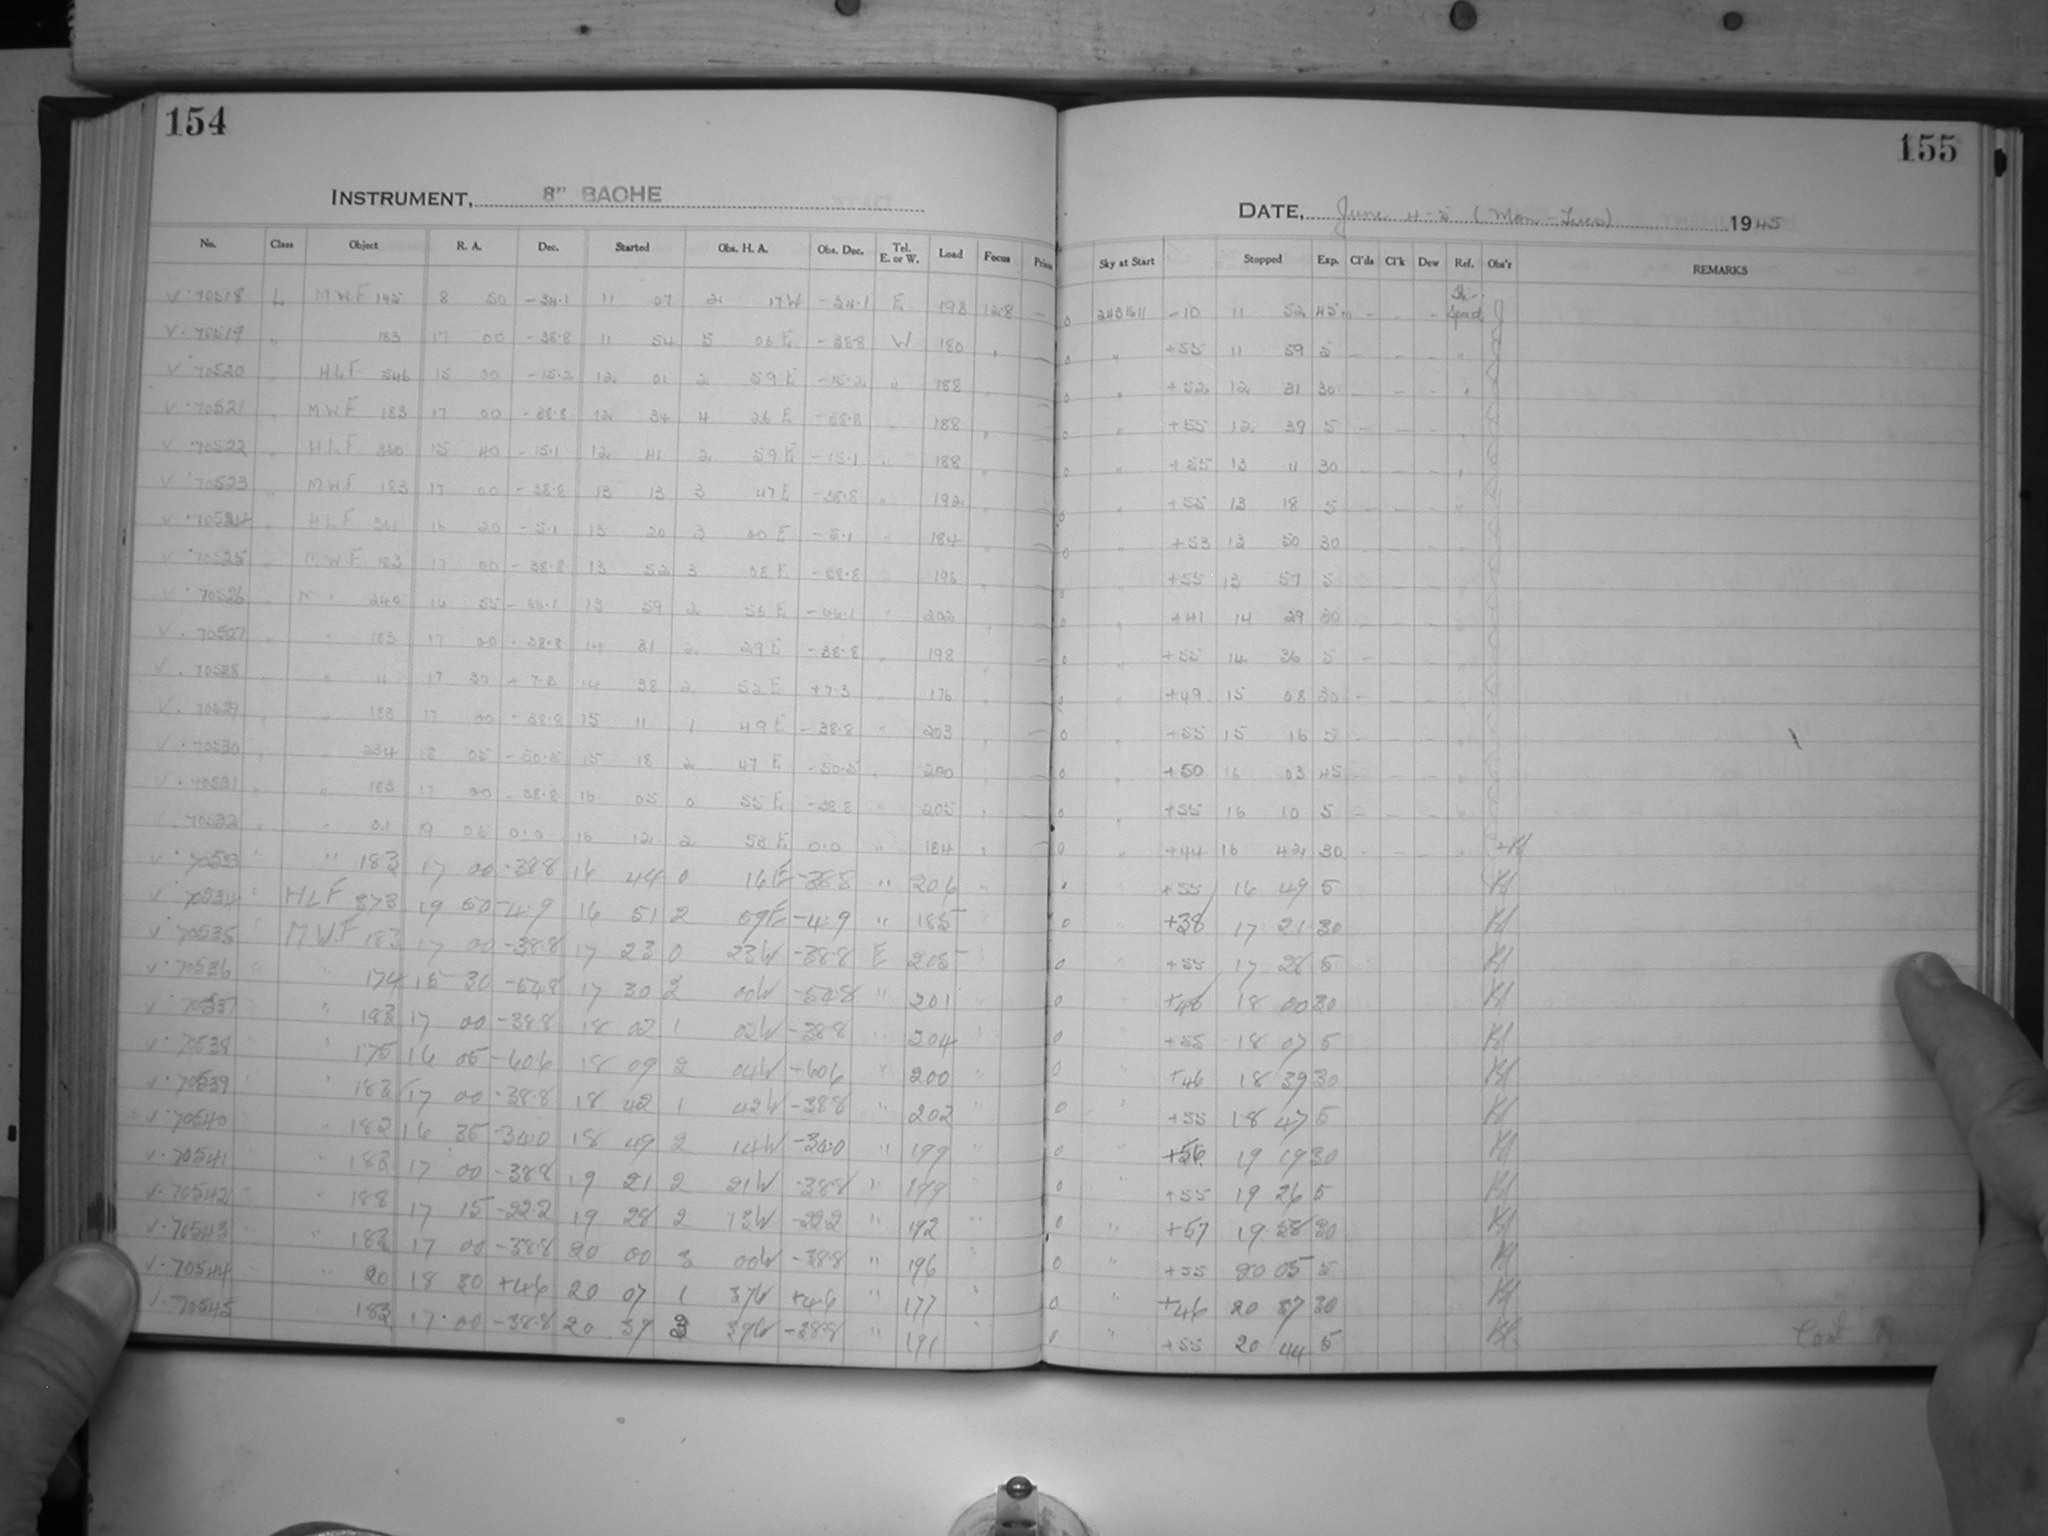 154
INSTRUMENT, 8" BACHE
No. Class Object R. A. Dec. Started Obs. H. A. Obs. Dec. Tel. E. or W. Load Focus Prism
V. 70518 L MWF 145 8 50 -34.1 11 07 2 17W -34.1 E 198 12.8 -
V. 70519 " 183 17 00 -38.8 11 54 5 06E -38.8 W 180
V. 70520 " HLF 546 15 00 -15.2 12 01 2 59E -15.2 " 188
V. 70521 " MWF 183 17 00 -38.8 12 34 4 26E -38.8 " 188
V. 70522 " HLF 360 15 40 -15.1 12 41 2 59E -15.1 " 188
V. 70523 " MWF 183 17 00 -38.8 13 13 3 47E -38.8 " 192
V. 70524 " HLF 16 20 -5.1 13 20 3 00E -5.1 " 184
V. 70525 " MWF 183 17 00 -38.8 13 52 3 08E -38.8 " 196
V. 70526 " M " 240 16 55 -66.1 13 59 2 56E -66.1 " 202
V. 70527 " " 183 17 00 -38.8 14 31 2 29E -38.8 " 198
V. 70528 " " 11 17 30 +7.3 14 38 2 52E +7.3 " 176
V. 70529 " " 183 17 00 -38.8 15 11 1 49E -38.8 " 203
V. 70530 " " 234 18 05 -50.5 15 18 2 47E -50.5 " 200
V. 70531 " " 183 17 00 -38.8 16 05 0 55E -38.8 " 205
V. 70532 " " 19 05 0.0 16 12 2 53E 0.0 " 184
V. 70533 " " 183 17 00 -38.8 16 44 0 16E -38.8 " 206
V. 70534 " HLF 373 19 50 -4.9 16 51 2 59E -4.9 " 185
V. 70535 " MWF 183 17 00 -38.8 17 23 0 23W -38.8 E 205
V. 70536 " " 174 15 30 -54.8 17 30 2 00W -54.8 " 201
V. 70537 " 183 17 00 -38.8 18 02 1 02W -38.8 204
V. 70538 " 175 16 05 -60.6 18 09 2 04W -60.6 " 200
V. 70539 " 183 17 00 -38.8 18 42 1 42W -38.8 " 202
V. 70540 " 182 16 35 -34.0 18 49 2 14W -34.0 " 199
V. 70541 " 183 17 00 -38.8 19 21 2 21W -38.8 " 199
V. 70542 " 188 17 15 -22.2 19 28 2 13W -22.2 " 192
V. 70543 " 183 17 00 -38.8 20 00 3 00W -38.8 " 196
V. 70544 " 20 18 30 +4.6 20 07 1 37W +4.6 " 177
V. 70545 " 183 17 00 -38.8 20 39 3 39W -38.8 " 191
155
DATE, June 4-5 (Mon-Tues) 1945
Sky at Start Stopped Exp. Cl'ds Cl'k Dew Ref. Obs'r REMARKS
0 2431611 -10 11 52 45m - - - J
0 " +55 11 59 5 - - - "
0 " +52 12 31 30 - - "
0 " +55 12 39 5 - - - "
0 " +55 13 11 30 - - - "
0 " +55 13 18 5 - - - "
0 " +53 13 50 30 - - - "
" +55 13 57 5 - - - "
0 " +41 14 29 30 - - - "
0 " +55 14 36 5 - - - "
" +49 15 08 30 - - - "
0 " +55 15 16 5 - - - "
0 " +50 16 03 45 - - - "
0 " +55 16 10 5 - - - "
0 " +44 16 42 30 - - - "
" +55 16 49 5
0 " +38 17 21 30
0 " +55 17 28 5
0 " +46 18 00 30
0 " +55 18 07 5
0 " +46 18 39 30
0 " +55 18 47 5
0 " +56 19 19 30
0 " +55 19 26 5
0 " +57 19 58 30
0 " +55 20 05 5
0 " +46 20 37 30
0 " +55 20 44 5